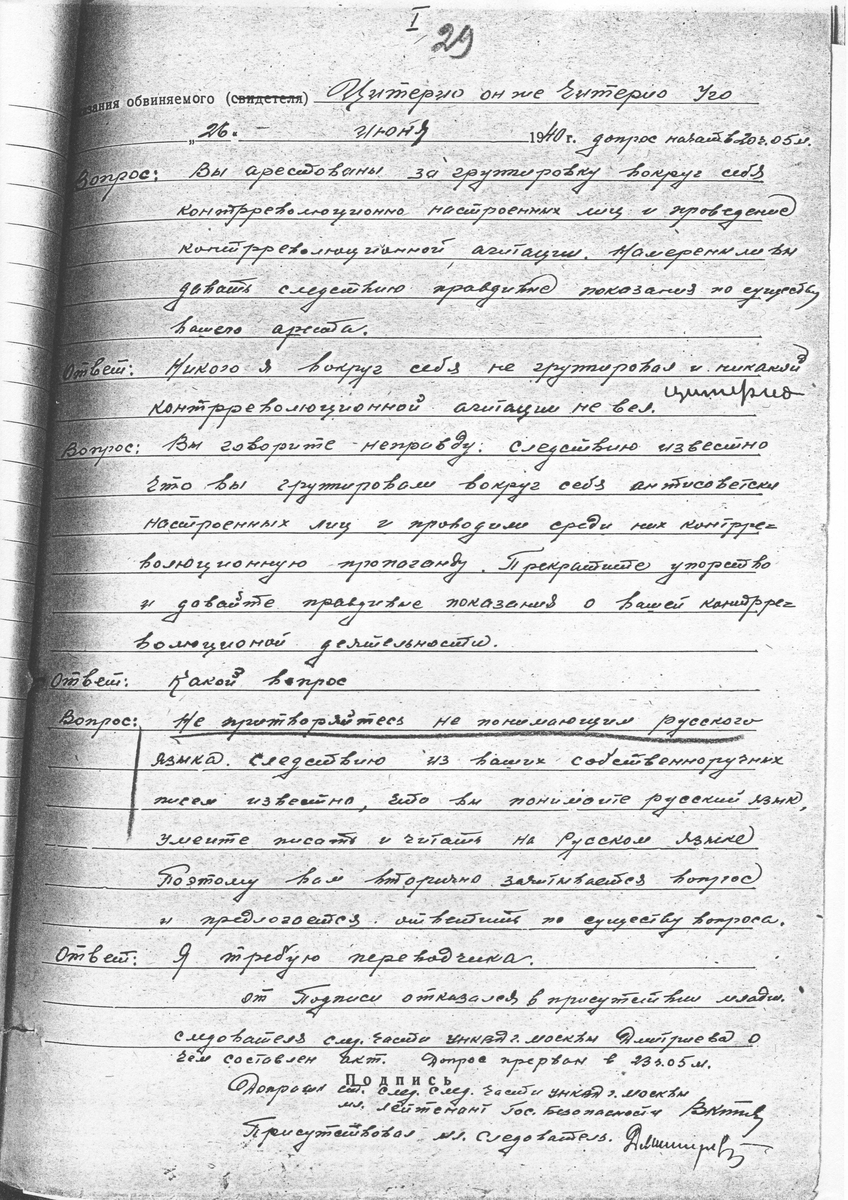 I
29
зания обвиняемого (свидетеля) Цитерио он же Читерио Уго
„26“ июня 1940 г. допрос начат в 20 ч. 05 м.
Вопрос: Вы арестованы за группировку вокруг себя
контрреволюционно настроенных лиц и проведение
контрреволюционной агитации. Намерены ли вы
давать следствию правдивые показания по существу
вашего ареста.
Ответ: Никого я вокруг себя не группировал и никакой
контрреволюционной агитации не вел. Цитерио
Вопрос: Вы говорите неправду. Следствию известно
что вы группировали вокруг себя антисоветски
настроенных лиц и проводили среди них контрре=
волюционную пропаганду. Прекратите упорство
и давайте правдивые показания о вашей контрре=
волюционой деятельности.
Ответ: Какой вопрос
Вопрос: Не притворяйтесь не понимающим русского
языка. Следствию из ваших собственноручных
писем известно, что вы понимаите русский язык,
умеите писать и читать на Русском языке
Поэтому вам вторично зачитывается вопрос
и предлогается ответить по существу вопроса.
Ответ: Я требую переводчика.
от Подписи отказался в присутствии младш.
следователя след. части УНКВД г. Москвы Дмитриева о
чем составлен акт. Допрос прерван в 23 ч. 05 м.
Подпись
Допросил ст. след. след. части УНКВД г. Москвы
мл. лейтенант Гос. Безопасности
Присутствовал мл. следователь. Дмитриев